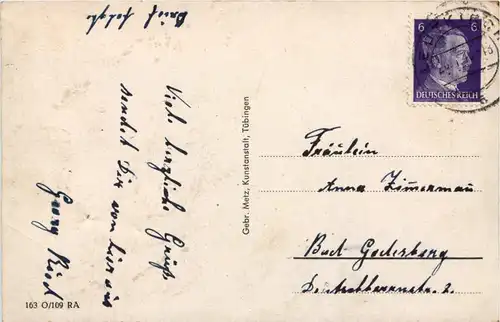 Brief folgt
Viele herzliche Grüße
sendet Dir von hier aus
Georg Ried
163 O/109 RA
Gebr. Metz, Kunstanstalt, Tübingen
6 6
DEUTSCHES REICH
Fräulein
Anna Zimmermann
Bad Godesberg
2.